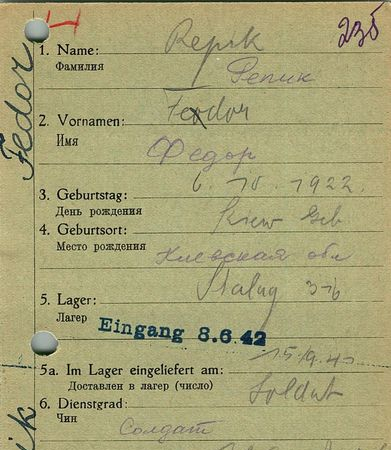 235
1. Name: Repik
Фамилия Репик
2. Vornamen: Feodor
Имя Федор
3. Geburtstag: 6. 10. 1922.
День рождения
4. Geburtsort: Kiew Geb
Место рождения Киевская обл
5. Lager: Stalag
Лагерь
Eingang 8.6.42
5a. Im Lager eingeliefert am:
Доставлен в лагер (число)
6. Dienstgrad: Soldat
Чин Солдат
Fedor